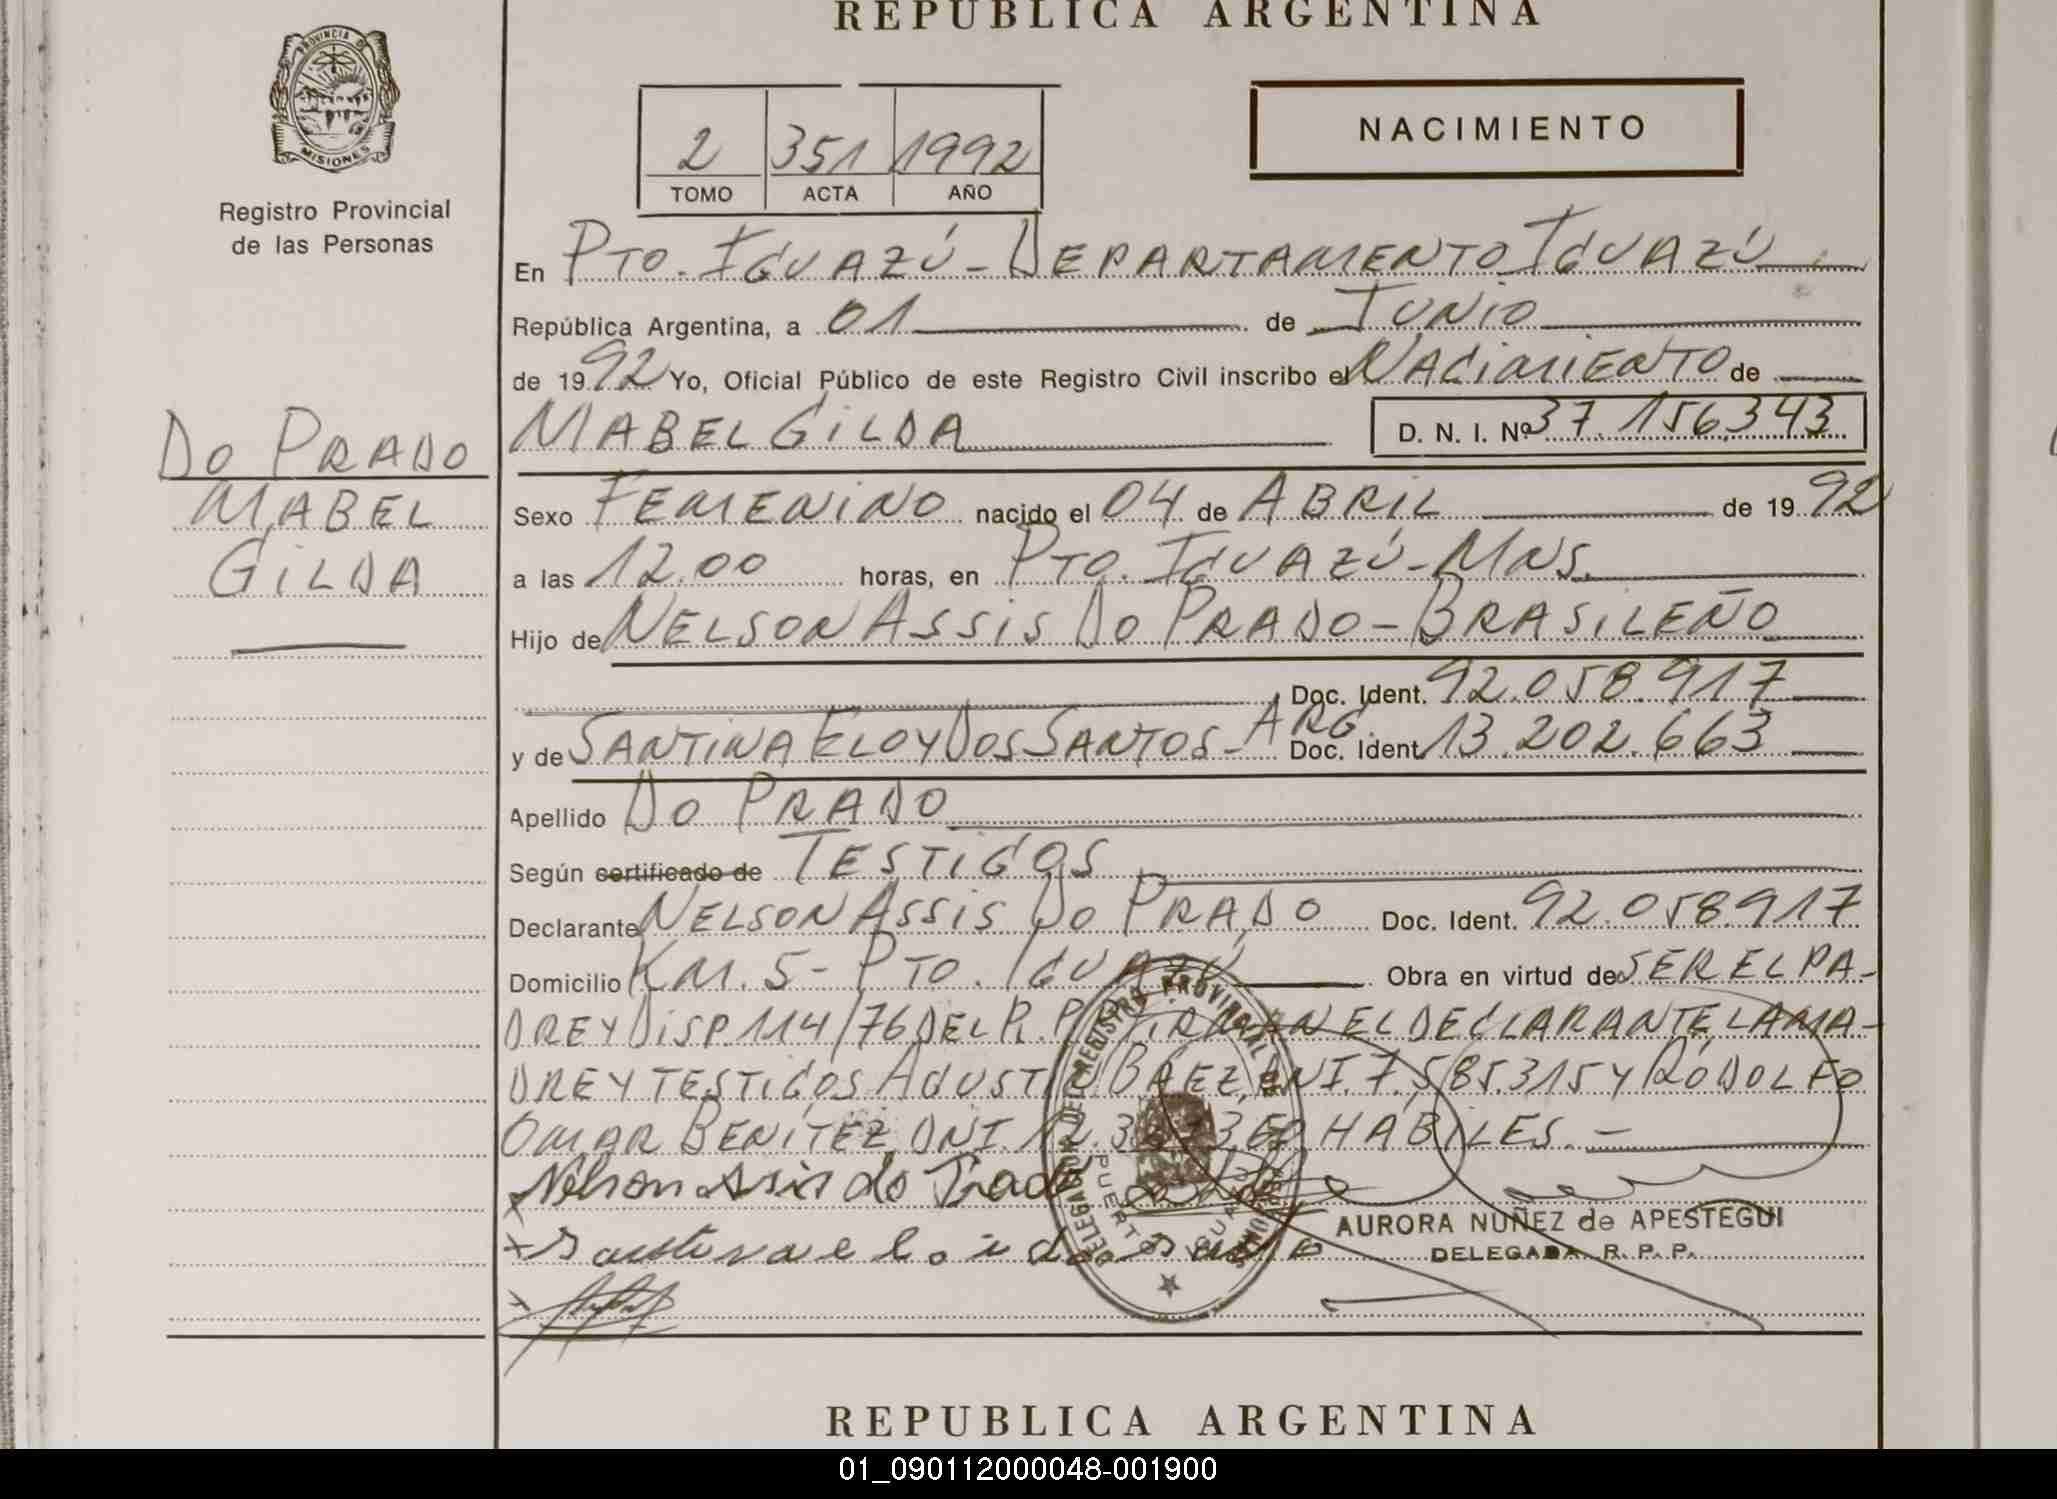 REPUBLICA ARGENTINA
PROVINCIA DE
MISIONES
Registro Provincial
de las Personas
2 351 1992
TOMO ACTA AÑO
NACIMIENTO
En PTO. IGUAZÚ - DEPARTAMENTO IGUAZÚ
República Argentina, a 01 de JUNIO
de 1992 Yo, Oficial Público de este Registro Civil inscribo el NACIMIENTO de
MABEL GILDA D. N. I. Nº 37.156.343
DO PRADO
MABEL
GILDA
Sexo FEMENINO nacido el 04 de ABRIL de 1992
a las 12.00 horas, en PTO. IGUAZÚ - MNS.
Hijo de NELSON ASSIS DO PRADO - BRASILEÑO
Doc. Ident. 92.058.917
y de SANTINA ELOY DOS SANTOS - ARG. Doc. Ident 13.202.663
Apellido DO PRADO
Según certificado de TESTIGOS
Declarante NELSON ASSIS DO PRADO Doc. Ident. 92.058.917
Domicilio KM. 5 - PTO. IGUAZÚ Obra en virtud de SER EL PA-
DRE Y DISP. 114/76 DEL R.P.P. FIRMAN EL DECLARANTE, LA MA-
DRE Y TESTIGOS AGUSTIN BAEZ, DNI. 7.585.315 Y RODOLFO
OMAR BENITEZ, DNI. HABILES. -
Nelson Assis do Prado
DELEGACION DEL REGISTRO PROVINCIAL DE LAS PERSONAS
PUERTO IGUAZU
AURORA NUÑEZ de APESTEGUI
DELEGADA R. P. P.
REPUBLICA ARGENTINA
01_090112000048-001900